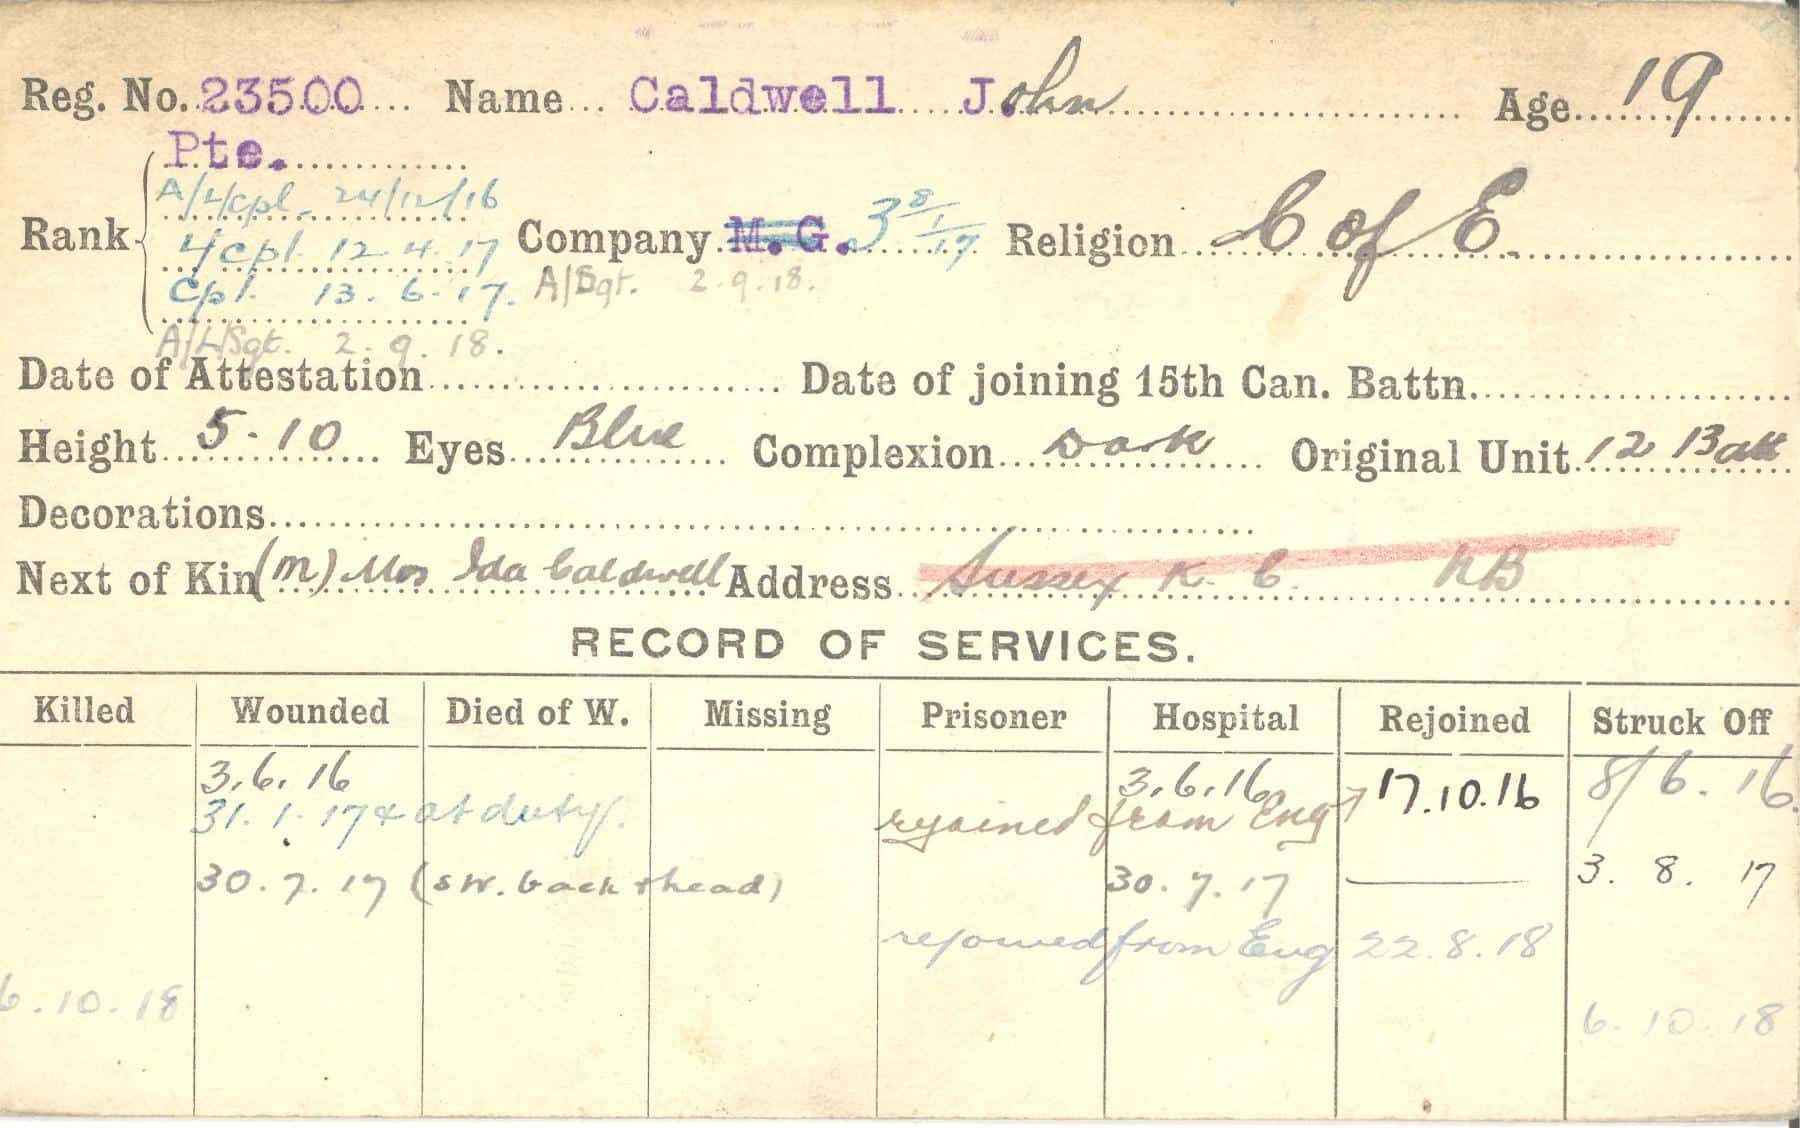 Reg. No. 23500 Name Caldwell John Age 19
Pte.
A/L/Cpl. 24/12/16
Rank L/Cpl. 12.4.17 Company M.G. 3 8/1/17 Religion C of E.
Cpl. 13.6.17. A/Sgt. 2.9.18.
A/L/Sgt. 2.9.18.
Date of Attestation Date of joining 15th Can. Battn.
Height 5-10 Eyes Blue Complexion Dark Original Unit 12 Batt
Decorations
Next of Kin (M) Mrs Ida Caldwell Address Sussex K. C. NB
RECORD OF SERVICES.
Killed Wounded Died of W. Missing Prisoner Hospital Rejoined Struck Off
3.6.16 3.6.16 17.10.16 8/6.16.
31.1.17 & at duty. rejoined from Eng
30.7.17 (SW. back & head) 30.7.17 3. 8. 17
rejoined from Eng 22.8.18
6.10.18 6.10.18